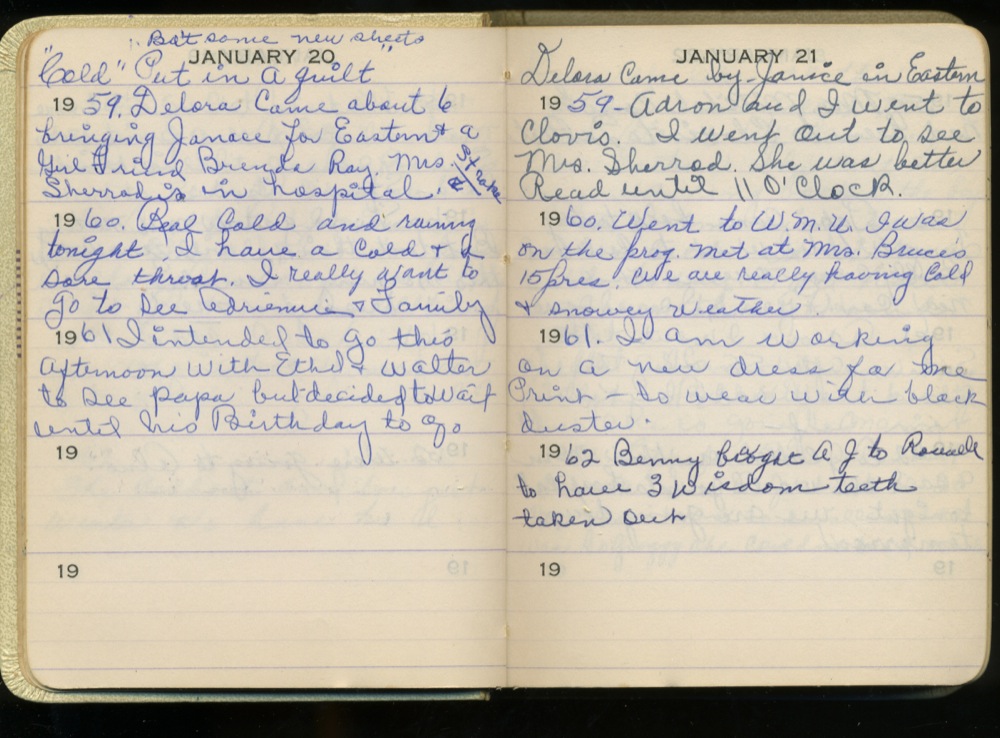 : Bot some new sheets
JANUARY 20
"Cold" Put in a quilt"
19 59. Delora Came about 6
bringing Janace for Eastern + a
Girl Friend Brenda Ray. Mrs.
Sherrod is in hospital.
stroke
19 60. Real Cold and raining
tonight. I have a Cold + a
sore throat. I really want to
go to see Adriennie + Family
19 61 I intended to go this
afternoon with Ethel + Walter
to see papa but decided to wait
until his Birthday to go
19
19
JANUARY 21
Delora Came by Janice in Eastern
19 59 - Adron and I went to
Clovis. I went out to see
Mrs. Sherrod. She was better
Read until 11 O'Clock.
19 60. Went to W.M.U. I was
on the prog. met at Mrs. Bruce's
15 pres. We are really having Cold
+ snowey weather.
19 61. I am working
on a new dress for me
Print - to wear with black
duster.
19 62 Benny brogt A J to Roswell
to have 3 wisdom teeth
taken out
19